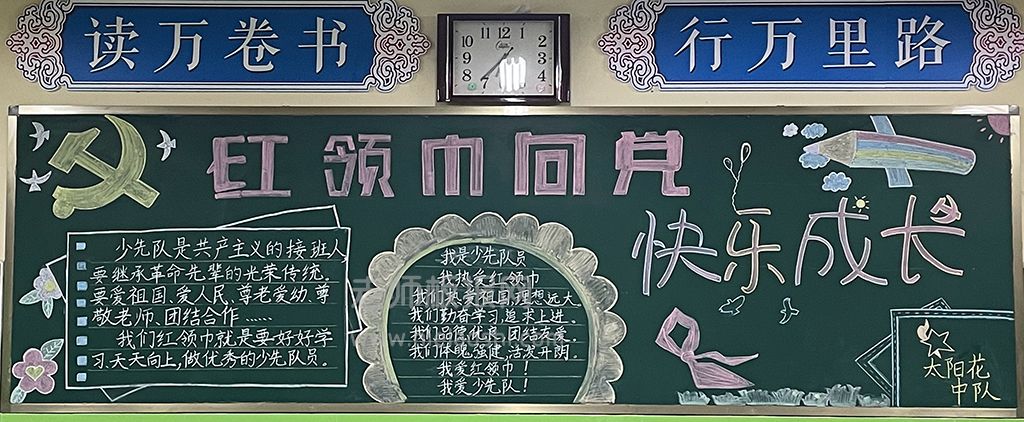 读万卷书
行万里路
12
11
1
10
2
9
3
8
4
7
5
6
红领巾向党
快乐成长
少先队是共产主义的接班人,
要继承革命先辈的光荣传统。
要爱祖国、爱人民、尊老爱幼、尊
敬老师、团结合作……
我们红领巾就是要好好学
习,天天向上,做优秀的少先队员。
我是少先队员
我热爱红领巾
我们热爱祖国,理想远大。
我们勤奋学习,追求上进。
我们品德优良,团结友爱。
我们体魄强健,活泼开朗。
我爱红领巾!
我爱少先队!
太阳花
中队